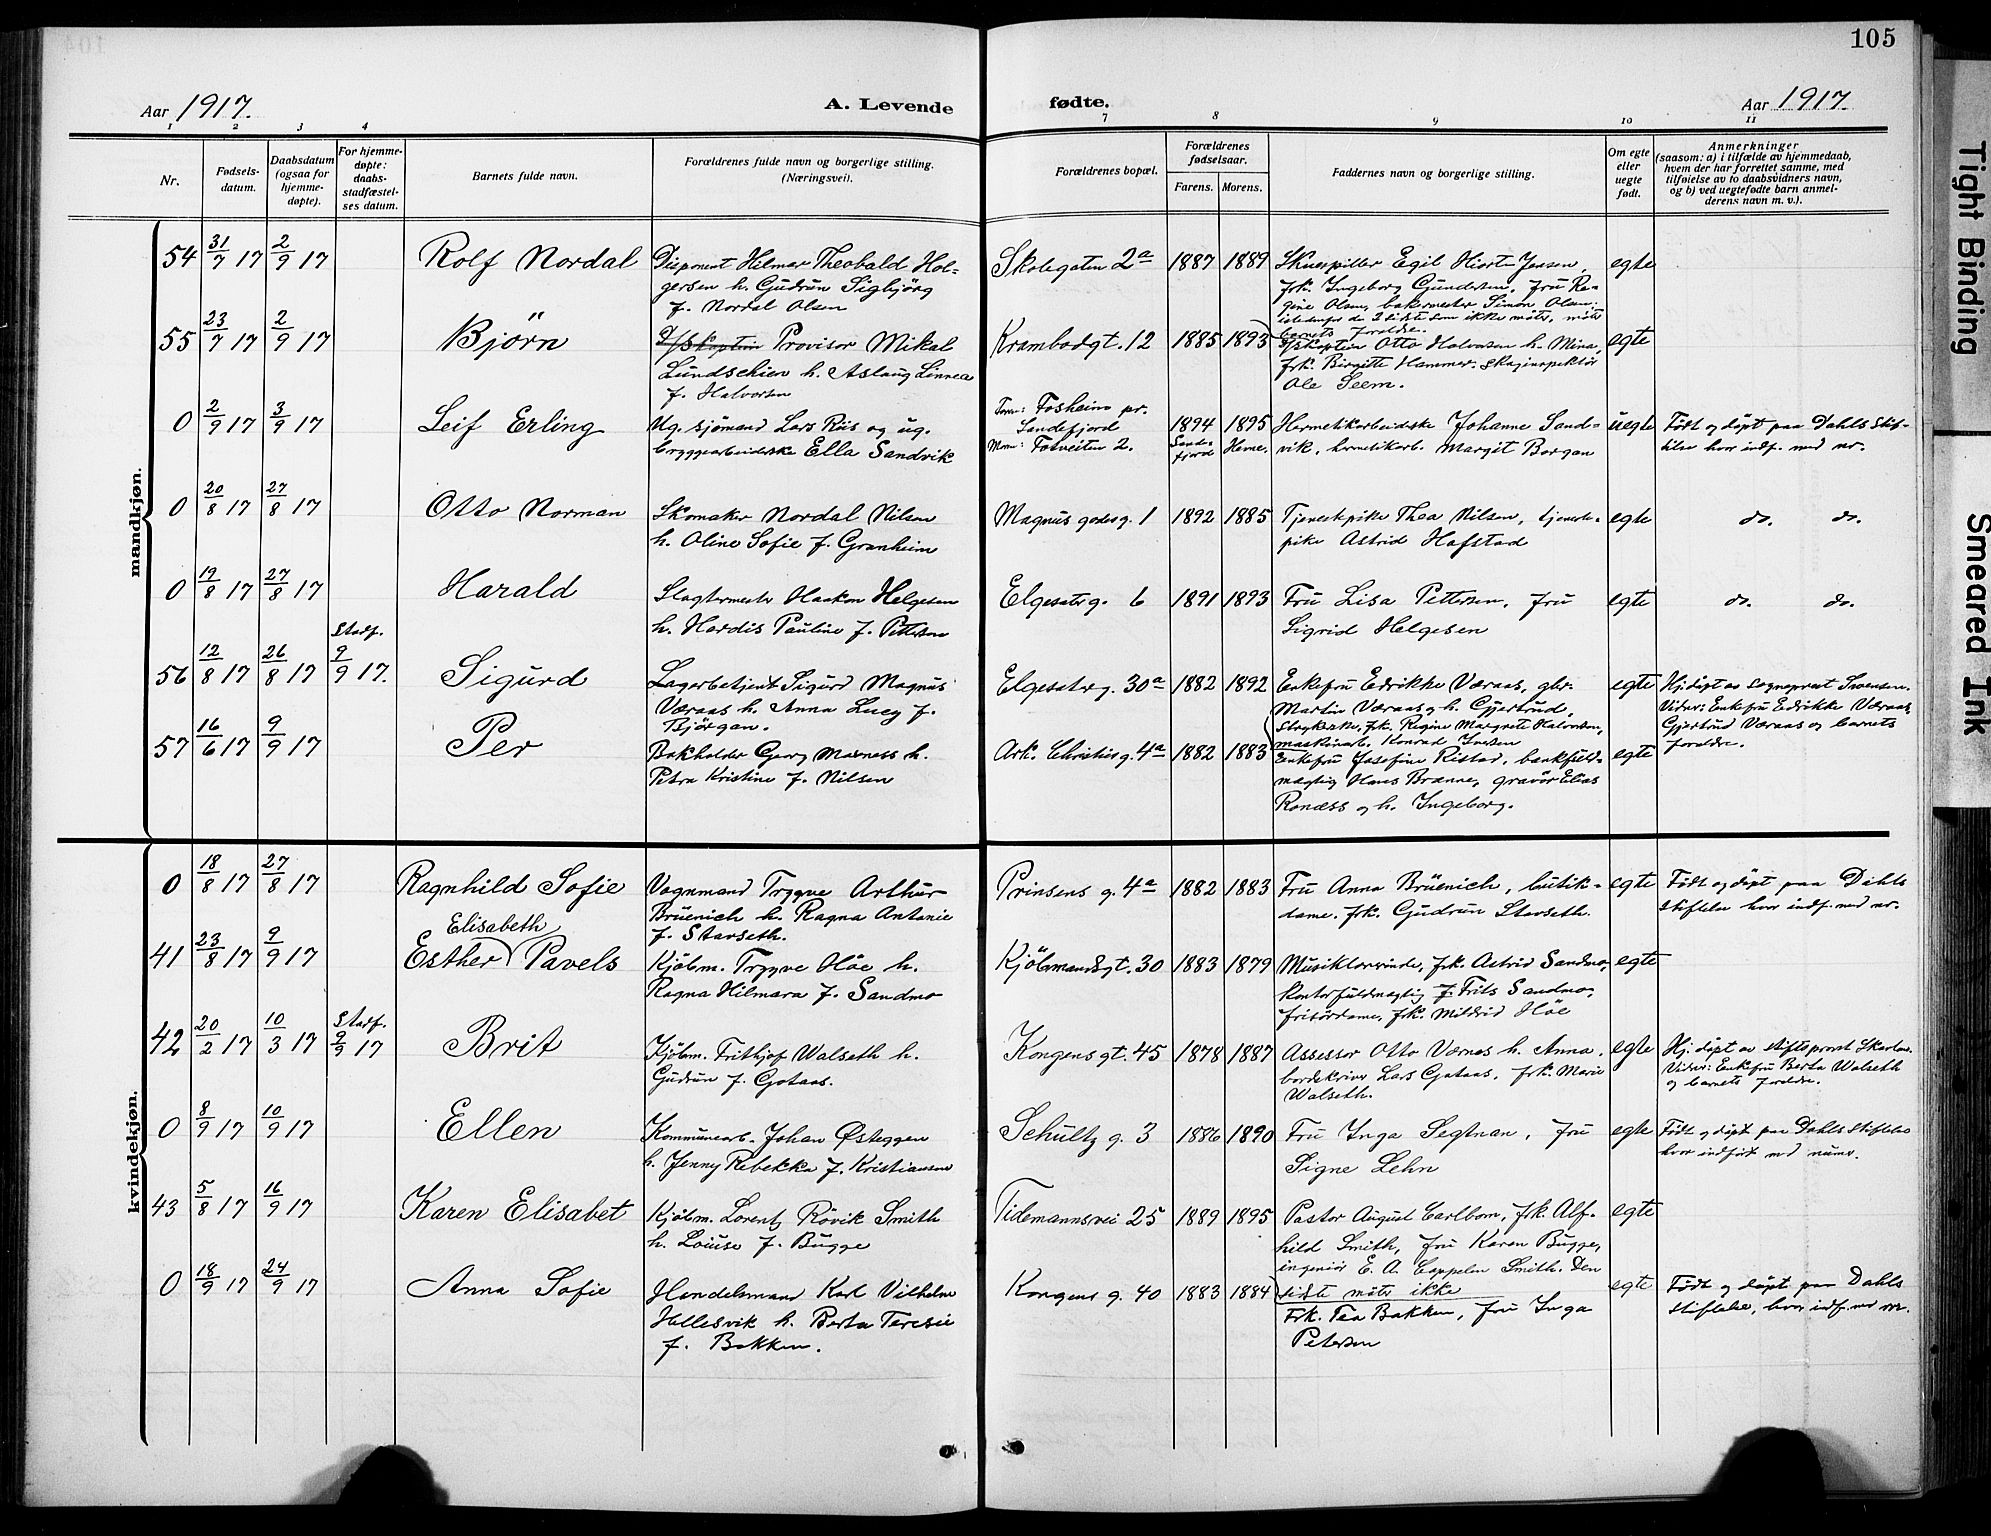 105
Aar 1917.
A. Levende
fødte.
Aar 1917.
1 2 3 4 7 8 9 10 11
Nr.
Fødsels-
datum.
Daabsdatum
(ogsaa for
hjemme-
døpte).
For hjemme-
døpte:
daabs-
stadfæstel-
ses datum.
Barnets fulde navn.
Forældrenes fulde navn og borgerlige stilling.
(Næringsvei).
Forældrenes bopæl.
Forældrenes
fødselsaar.
Farens. Morens.
Faddernes navn og borgerlige stilling.
Om egte
eller
uegte
født.
Anmerkninger
(saasom: a) i tilfælde av hjemmedaab,
hvem der har forrettet samme, med
tilføielse av to daabsvidners navn,
og b) ved uegtefødte barn anmel-
derens navn m. v.).
mandkjøn.
54 31/7 17 2/9 17 Rolf Nordal
Disponent Hilmar Theobald Hol-
gersen h. Gudrun Sigbjørg
f. Nordal Olsen
Skolegaten 2a 1887 1889
Skuespiller Egil Hiorth Jensen,
frk. Ingeborg Gundersen, fru Ra-
gine Olsen, bakermester Simon Olsen.
istedenfor de 2 sidste som ikke møtte, møtte
barnets forældre.
egte
55 23/7 17 2/9 17 Bjørn
D/Skaptein Provisor Mikal
Lundschien h. Aslaug Linnea
f. Halvorsen
Krambodgt. 12 1885 1893
D/Skaptein Otto Halvorsen h. Mina,
frk. Birgitte Hammer. Skoginspektør
Ole Seem.
egte
0 2/9 17 3/9 17 Leif Erling
Ug. sjømand Lars Riis og ug.
bryggearbeiderske Ella Sandvik
Faren: Fosheim pr.
Sandefjord
Moren: Tosveiten 2.
1894 Sande-
fjord
1895 Hevne.
Hermetikarbeiderske Johanne Sand-
vik, hermetikarb. Margit Borgan
uegte
Født og døpt paa Dahls Stif-
telse hvor indf. med nr.
0 20/8 17 27/8 17 Otto Norman
Skomaker Nordal Nilsen
h. Oline Sofie f. Granheim
Magnus godesg. 1 1892 1885
Tjenestepike Thea Nilsen, tjeneste-
pike Astrid Hafstad
egte
do. do.
0 19/8 17 27/8 17 Harald
Slagtermester Haakon Helgesen
h. Hardis Pauline f. Pettersen
Elgesæterg. 6 1891 1893
Fru Lisa Pettersen, fru
Sigrid Helgesen
egte
do. do.
56 12/8 17 26/8 17 Stadf. 9/9 17. Sigurd
Lagerbetjent Sigurd Magnus
Væraas h. Anna Lucy f.
Bjørgan.
Elgesæterg. 30a 1882 1892
Enkefru Edrikke Væraas,
Martin Væraas og h. Gjertrud,
Strykerske, frk. Regine Margrete Halvorsen,
maskinarb. Konrad Iversen
egte
Hj. døpt av sogneprest Svensen.
Vidner: Enkefru Edrikke Væraas,
Gjertrud Væraas og barnets
forældre.
57 16/6 17 9/9 17 Per
Bokholder Georg Mosness h.
Petra Kristine f. Nilsen
Ark. Christies g. 4a 1882 1883
Enkefru Josefine Ristad, bankfuld-
mægtig Hans Brænne, gravør Elias
Ronæss og h. Ingeborg.
egte
kvindekjøn.
0 18/8 17 27/8 17 Ragnhild Sofie
Vognmand Trygve Arthur
Brüenich h. Ragna Antonie
f. Stavseth.
Prinsens g. 4a 1882 1883
Fru Anna Brüenich, butik-
dame. frk. Gudrun Stavseth.
egte
Født og døpt paa Dahls
stiftelse hvor indf. med nr.
41 23/8 17 9/9 17 Elisabeth
Esther Pavels
Kjøbm. Trygve Høe h.
Ragna Hilmara f. Sandmo
Kjøbmandsgt. 30 1883 1879
Musiklærerinde, frk. Astrid Sandmo,
kontorfuldmægtig Frits Sandmo,
frisørdame, frk. Mildrid Høe
egte
42 20/2 17 10/3 17 Stadf. 9/9 17 Brit
Kjøbm. Frithjof Walseth h.
Gudrun f. Gotaas.
Kongensgt. 45 1878 1887
Assessor Otto Værnes h. Anna,
bordskriver Lars Gotaas, frk. Marie
Walseth.
egte
Hj. døpt av stiftsprovst
Vidner: Enkefru Berta Walseth
og barnets forældre.
0 8/9 17 10/9 17 Ellen
Kommunearb. Johan Østeggen
h. Jenny Rebekka f. Kristiansen
Schultz g. 3 1886 1890
Fru Inga Segtnan, fru
Signe Lehn
egte
Født og døpt paa Dahls Stiftelse
hvor indført med numr.
43 5/8 17 16/9 17 Karen Elisabet
Kjøbm. Lorentz Røvik Smith
h. Louise f. Bugge
Tidemannsvei 25 1889 1895
Pastor August Carlbom, frk. Alf-
hild Smith, fru Karen Bugge,
ingeniør E. A. Cappelen Smith. Den
sidste møtte ikke
egte
0 18/9 17 24/9 17 Anna Sofie
Handelsmand Karl Vilhelm
Hellesvik h. Berta Teresie
f. Bakken.
Kongens g. 40 1883 1884
Frk. Tea Bakken, fru Inga
Petersen
egte
Født og døpt paa Dahls
stiftelse, hvor indf. med nr.
Tight Binding
Smeared Ink